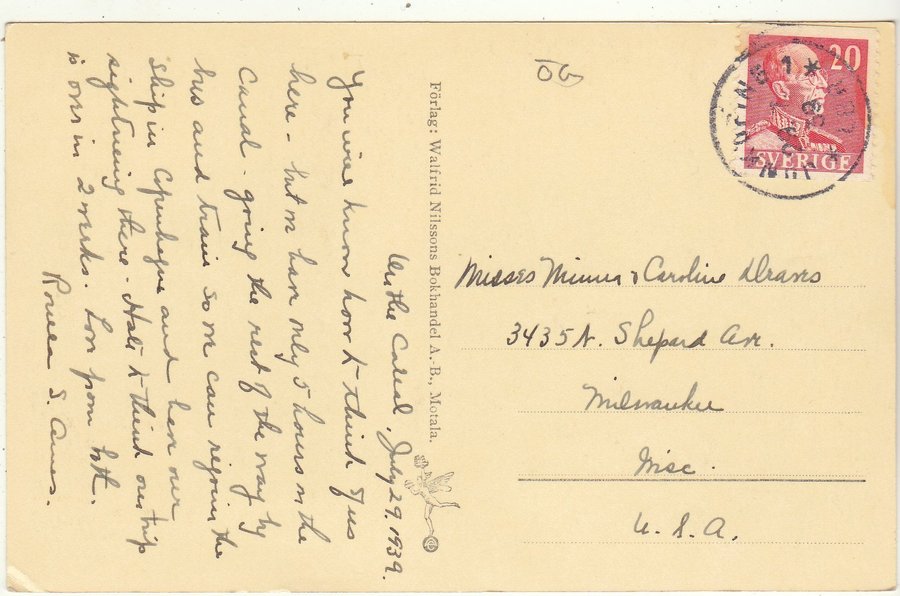 On the Canal, July 29, 1939.
You will know how to think of us
here - but we have only 5 hours on the
Canal - going the rest of the way by
bus and train so we can rejoin the
ship in Copenhagen and have our
sightseeing there. Hate to think our trip
is over in 2 weeks. Love from both.
S. Ames.
Förlag: Walfrid Nilssons Bokhandel A.-B., Motala.
OG
20
SVERIGE
1
Misses Minna & Caroline Draves
3435 N. Shepard Ave.
Milwaukee
Wisc.
U. S. A.